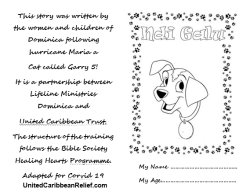 This story was written by
the women and children of
Dominica following
hurricane Maria a
Cat called Garry 5!
It is a partnership between
Lifeline Ministries
Dominica and
United Caribbean Trust.
The structure of the training
follows the Bible Society
Healing Hearts Programme.
Adapted for Corvid 19
UnitedCaribbeanRelief.com
Indi Gallu
My Name
My Age